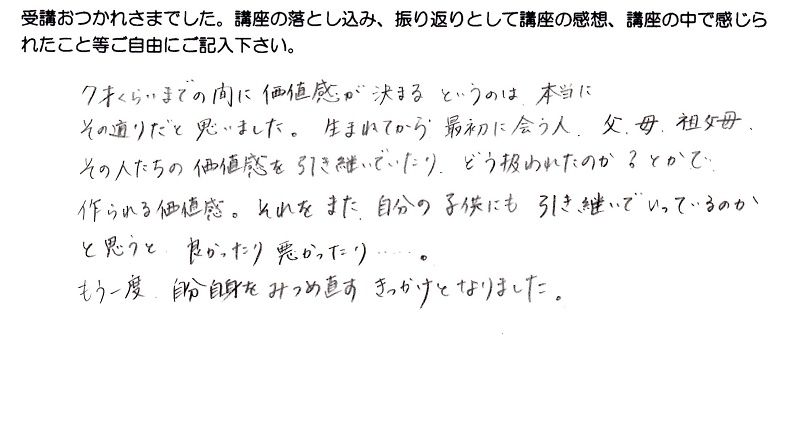 受講おつかれさまでした。講座の落とし込み、振り返りとして講座の感想、講座の中で感じら
れたこと等ご自由にご記入下さい。
7才くらいまでの間に価値感が決まるというのは、本当に
その通りだと思いました。生まれてから最初に会う人、父、母、祖父母、
その人たちの価値感を引き継いでいたり、どう扱われたのか？とかで
作られる価値感。それをまた、自分の子供にも引き継いでいっているのか
と思うと、良かったり悪かったり……。
もう一度、自分自身をみつめ直すきっかけとなりました。